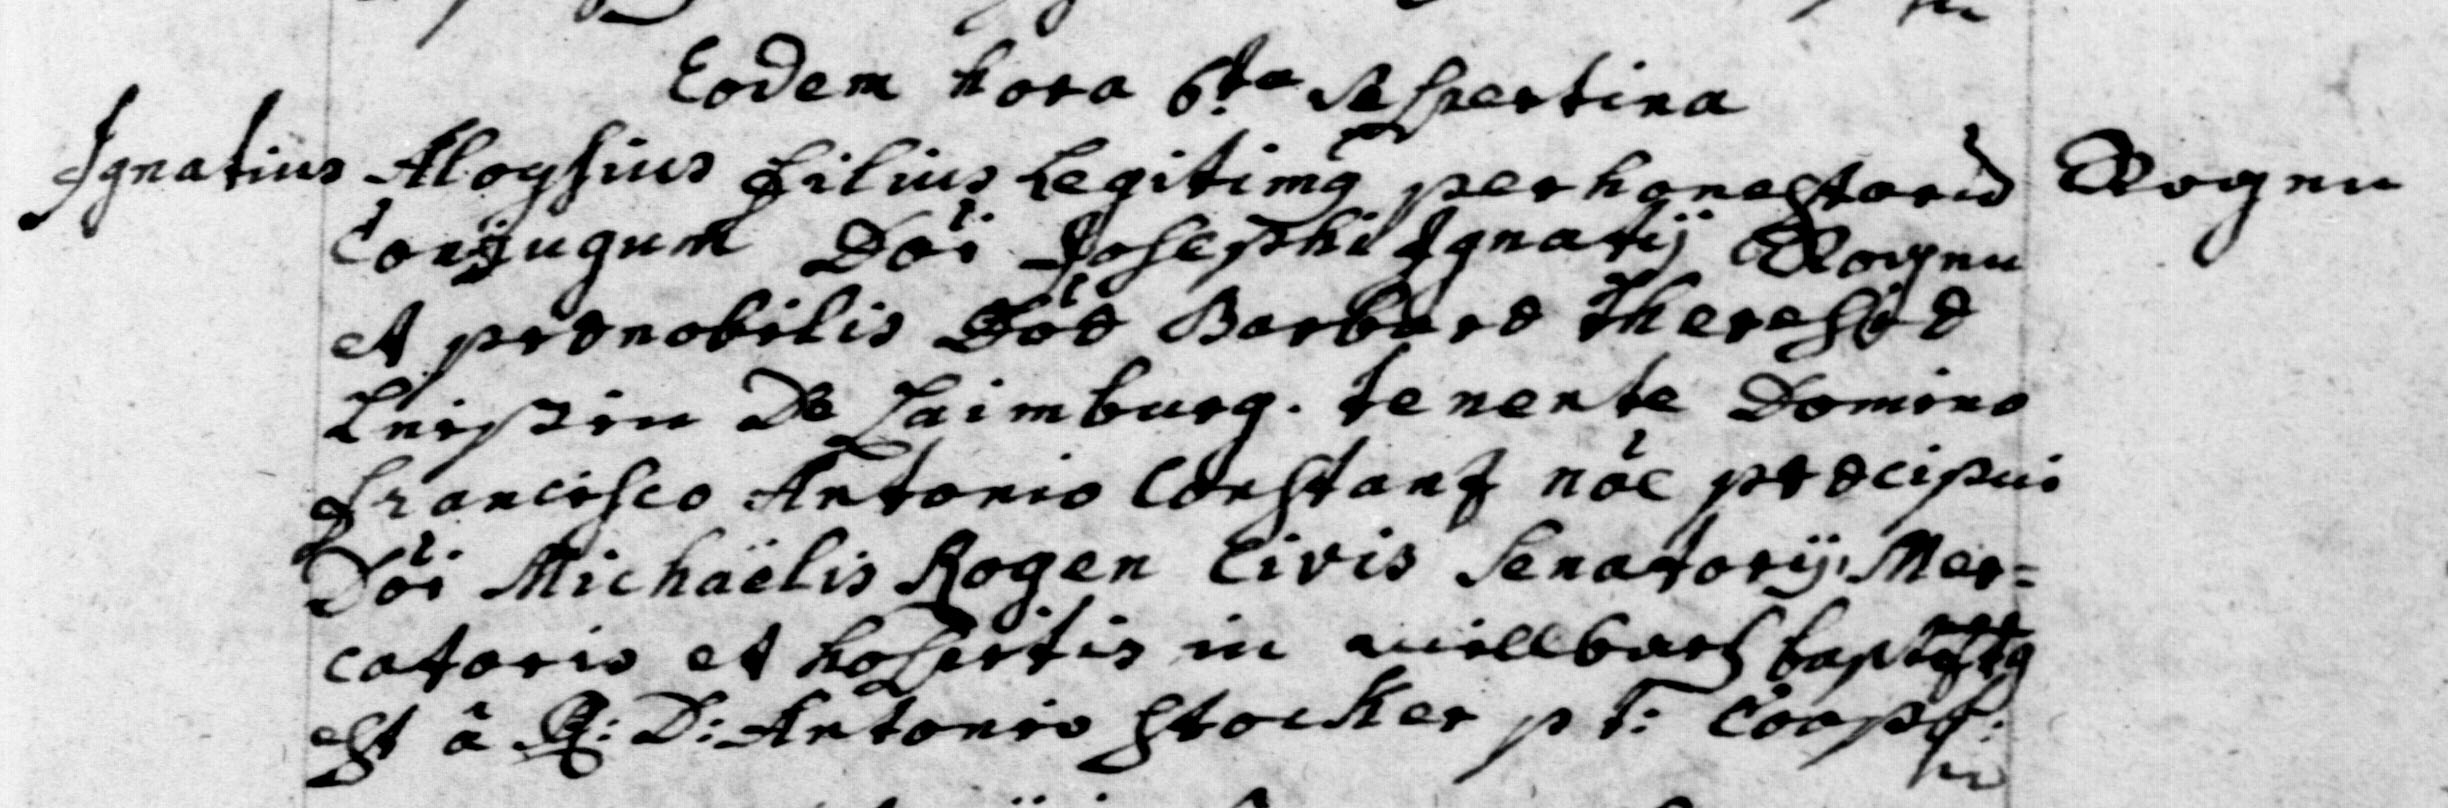 Eodem hora 6ta Vespertina
Ignatius Aloysius Filius Legitimq perhonestorũ
Conjugum Dõi Josephi Ignatij
et prænobilis Dõæ Barbaræ Theresiæ
De Laimburg. tenente Domino
Francisco Antonio Constanz nõe præcipui
Dõi Michaëlis Rogen Civis Senatorij, Mer=
catoris et hospitis in baptztq
est â R: D: Antonio Stocker pt: Coop: